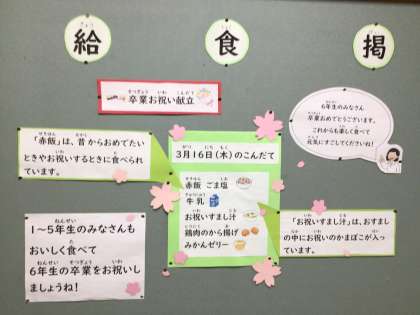 給食掲
卒業お祝い献立
6年生のみなさん
卒業おめでとうございます。
これからも楽しく食べて
元気にすごしてくださいね!
「赤飯」は、昔からおめでたい
ときやお祝いするときに食べられ
ています。
3月16日(木)のこんだて
赤飯 ごま塩
牛乳
お祝いすまし汁
鶏肉のから揚げ
みかんゼリー
「お祝いすまし汁」は、おすまし
の中にお祝いのかまぼこが入っ
ています。
1~5年生のみなさんも
おいしく食べて
6年生の卒業をお祝いし
ましょうね!